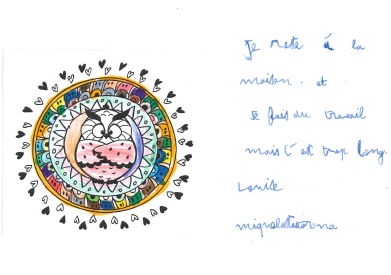 Je reste à la
maison. et.
Je fais du travail
mais c'est trop long.
Louise